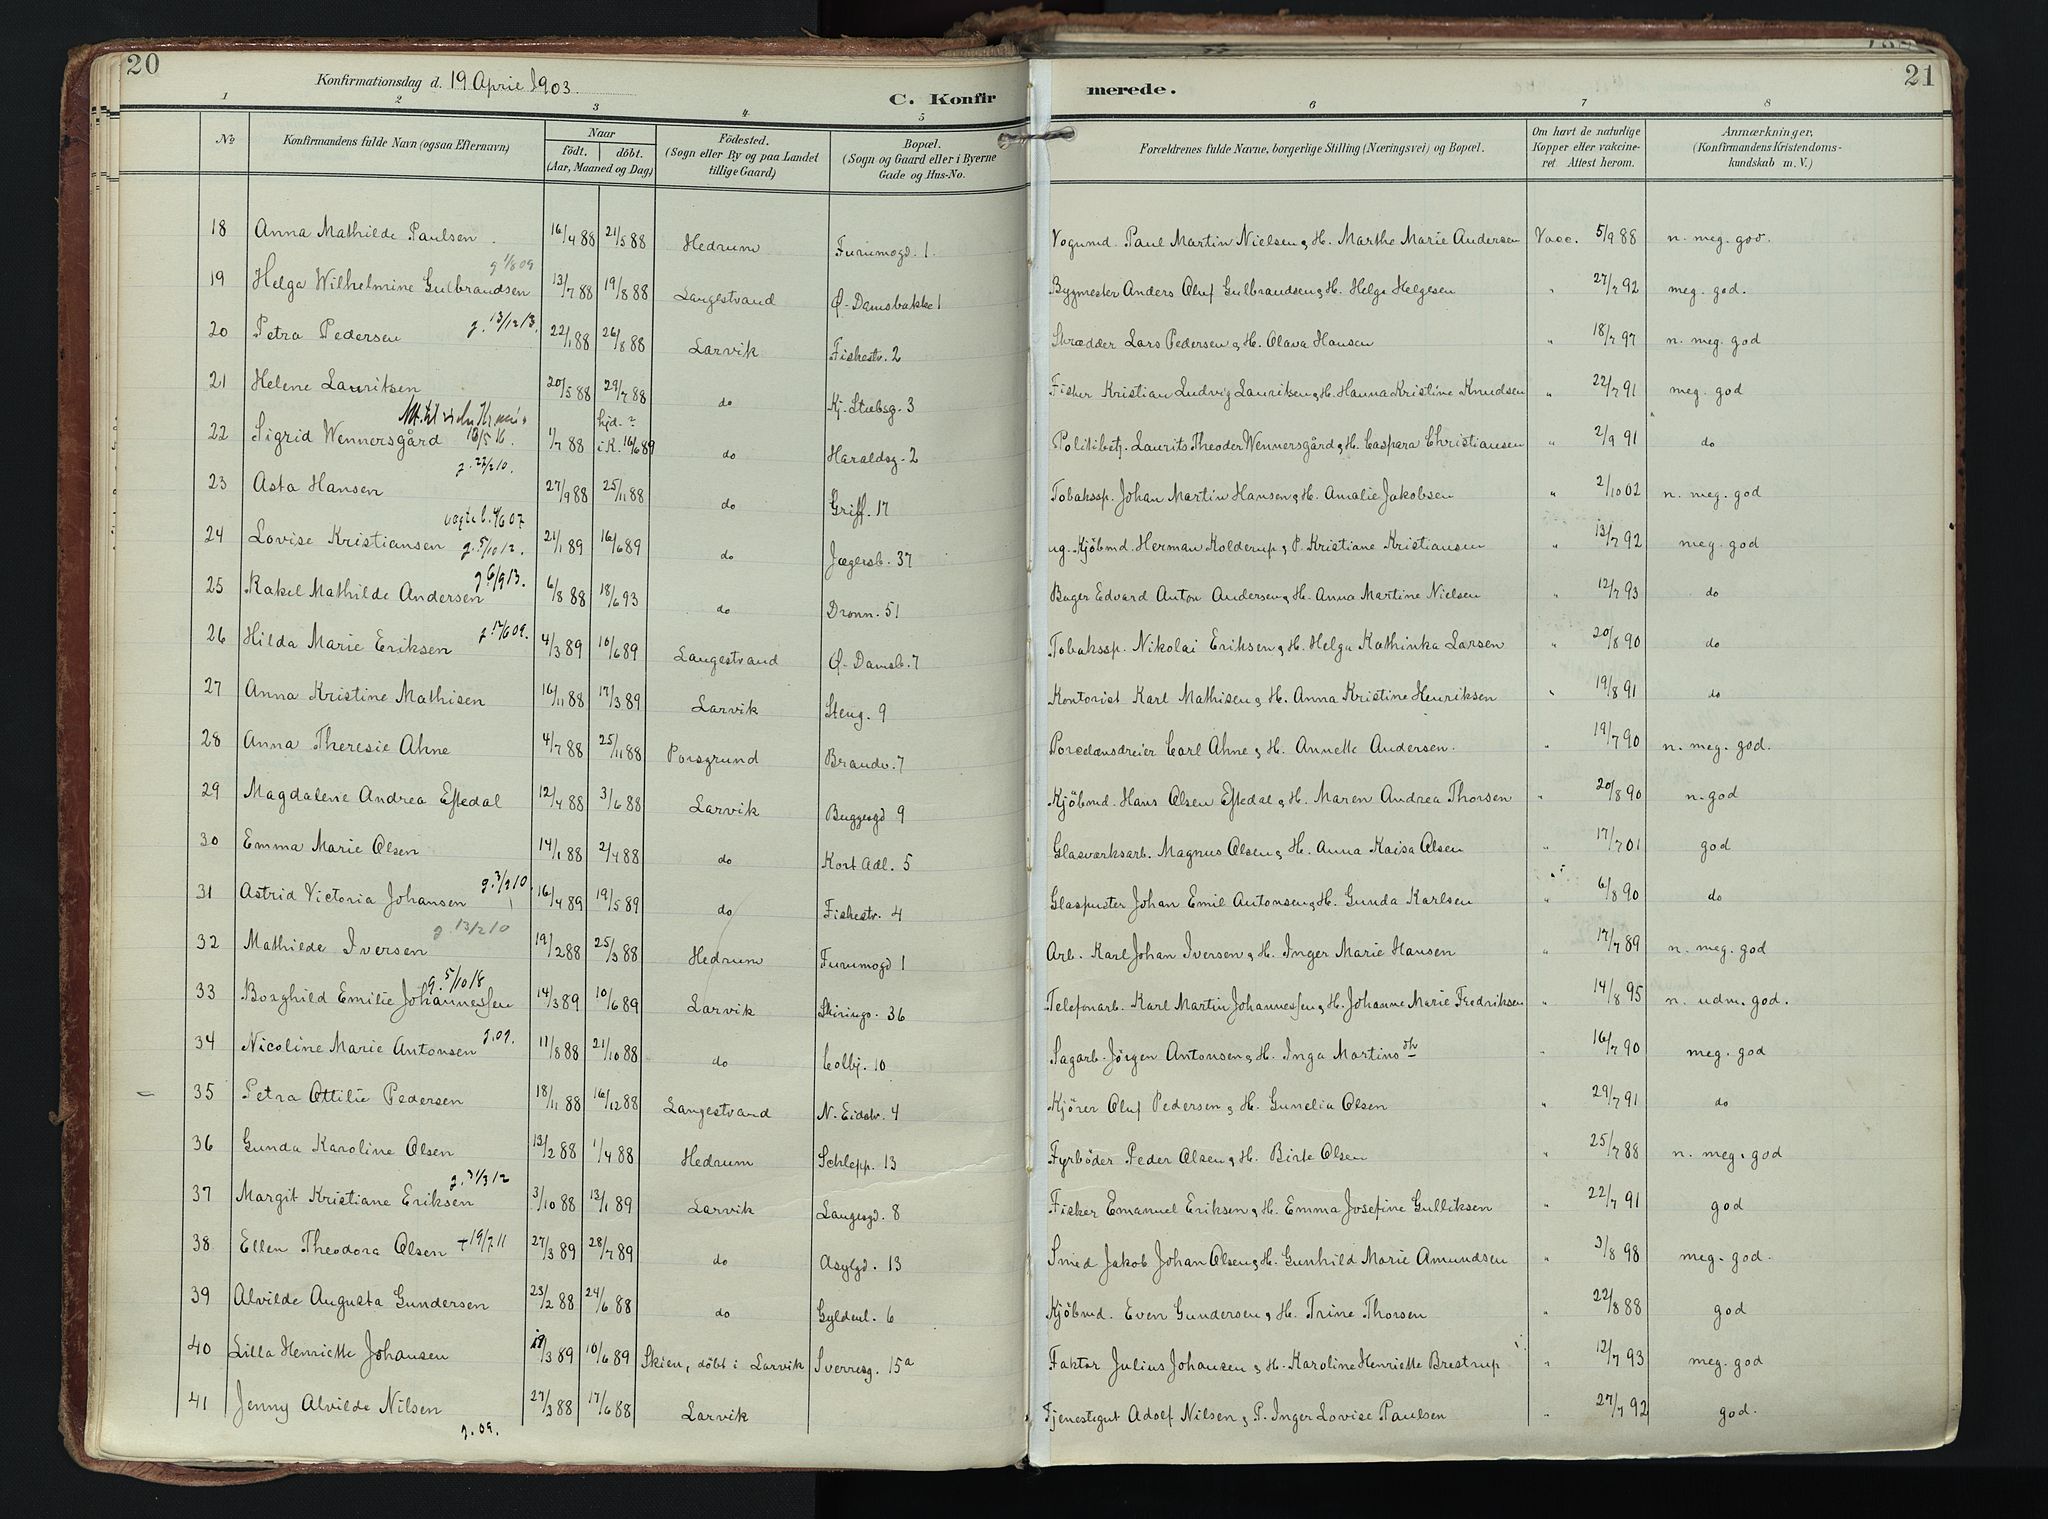 20
Konfirmationsdag d. 19 April 1903.
C. Konfirmerede.
21
1 2 3 4 5 6 7 8
No
Konfirmandens fulde Navn (ogsaa Efternavn)
Naar
födt. döbt.
(Aar, Maaned og Dag)
Födested.
(Sogn eller By og paa Landet
tillige Gaard)
Bopæl.
(Sogn og Gaard eller i Byerne
Gade og Hus-No.
Forældrenes fulde Navne, borgerlige Stilling (Næringsvei) og Bopæl.
Om havt de naturlige
Kopper eller vakcine-
ret Attest herom.
Anmærkninger.
(Konfirmandens Kristendoms-
kundskab m. V.)
18 Anna Mathilde Paulsen 16/4 88 21/5 88 Hedrum Furumogd. 1. Vognmd. Paul Martin Nielsen & H. Marthe Marie Andersen Vacc. 5/9 88 n. meg. god.
g 1/8 09
19 Helga Wilhelmine Gulbrandsen 13/7 88 19/8 88 Langestrand Ø-Damsbakke 1 Bygmester Anders Oluf Gulbrandsen & H. Helga Helgesen " 27/7 92 meg. god.
20 Petra Pedersen g. 13/12 13. 22/1 88 26/8 88 Larvik Fiskestr. 2 Skrædder Lars Pedersen & H. Olava Hansen " 18/7 97 n. meg. god
21 Helene Lauritsen 20/5 88 29/7 88 do Kj. Stubsg. 3 Fisker Kristian Ludvig Lauritsen & H. Hanna Kristine Knudsen " 22/7 91 meg. god
22 Sigrid Wennersgård 1/7 88 hjd. ? i K. 16/6 89 do Haraldsg. 2 Politibetj. Laurits Theodor Wennersgård & H. Caspara Christiansen " 2/9 91 do
g. 27/2 10.
23 Asta Hansen 27/9 88 25/11 88 do Griff. 17 Tobakssp. Johan Martin Hansen & H. Amalie Jakobsen " 2/10 02 n. meg. god
24 Lovise Kristiansen g. 5/10 12. 21/1 89 16/6 89 do Jægersb. 37 ug. Kjöbmd. Herman Kolderup & P. Kristiane Kristiansen " 13/7 92 meg. god
g 6/9 13.
25 Rakel Mathilde Andersen 6/8 88 18/6 93 do Dronn. 51 Bager Edvard Anton Andersen & H. Anna Martine Nielsen " 12/7 93 do
26 Hilda Marie Eriksen 4/3 89 10/6 89 Langestrand Ø-Damsb. 7 Tobakssp. Nikolai Eriksen & H. Helga Kathinka Larsen " 20/8 90 do
27 Anna Kristine Mathisen 16/11 88 17/3 89 Larvik Steng. 9 Kontorist Karl Mathisen & H. Anna Kristine Henriksen " 19/8 91 do
28 Anna Theresie Ahne 4/7 88 25/11 88 Porsgrund Brandv. 7 Porcelænsdreier Carl Ahne & H. Annette Andersen. " 19/7 90 n. meg. god.
29 Magdalene Andrea Eftedal 12/4 88 3/6 88 Larvik Buggesgd 9 Kjöbmd. Hans Olsen Eftedal & H. Maren Andrea Thorsen " 20/8 90 n. god
30 Emma Marie Olsen 14/1 88 2/4 88 do Kort Adl. 5 Glasværksarb. Magnus Olsen & H. Anna Kaisa Olsen " 17/7 01 god
31 Astrid Victoria Johansen g. 3/2 10 16/4 89 19/5 89 do Fiskestr. 4 Glaspuster Johan Emil Antonsen & H. Gunda Karlsen " 6/8 90 do
32 Mathilde Iversen g. 13/2 10 19/2 88 25/3 88 Hedrum Furumogd 1 Arb. Karl Johan Iversen & H. Inger Marie Hansen " 17/7 89 n. meg. god
g. 5/10 18
33 Borghild Emilie Johannessen 14/3 89 10/6 89 Larvik Skirings. 36 Telefonarb. Karl Martin Johannessen & H. Johanne Marie Fredriksen " 14/8 95 n. udm. god.
34 Nicoline Marie Antonsen g. 09. 11/8 88 21/10 88 do Colbj. 10 Sagarb. Jörgen Antonsen & H. Inga Martinsdtr " 16/7 90 meg. god
35 Petra Ottilie Pedersen 18/11 88 16/12 88 Langestrand N. Eidstr. 4 Kjörer Oluf Pedersen & H. Gunelia Olsen " 29/7 91 do
36 Gunda Karoline Olsen 13/2 88 1/4 88 Hedrum Schlepp. 13 Fyrböder Peder Olsen & H. Birte Olsen " 25/7 88 n. meg. god
g. 31/3 12
37 Margit Kristiane Eriksen 3/10 88 13/1 89 Larvik Langesgd. 8 Fisker Emanuel Eriksen & H. Emma Josefine Gulliksen " 22/7 91 god
38 Ellen Theodora Olsen + 19/7 11 27/3 89 28/7 89 do Asylgd. 13 Smed Jakob Johan Olsen & H. Gunhild Marie Amundsen " 3/8 98 meg. god.
39 Alvilde Augusta Gundersen 23/2 88 24/6 88 do Gyldenl. 6 Kjöbmd. Even Gundersen & H. Trine Thorsen " 22/8 88 god
40 Lilla Henriette Johansen /3 89 10/6 89 Skien, döbt i Larvik Sverresg. 15a Faktor Julius Johansen & H. Karoline Henriette Brestrup " 12/7 93 meg. god
41 Jenny Alvilde Nilsen 27/3 88 17/6 88 Larvik Tjenestegut Adolf Nilsen & P. Inger Lovise Paulsen " 27/7 92 god.
g. 09.